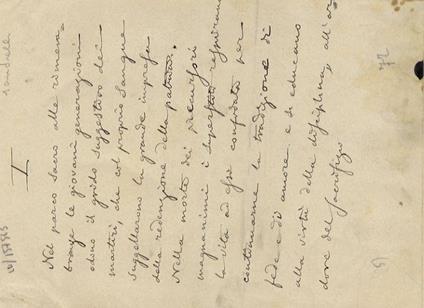 I
Nel parco sacro alle rimem-
branze le giovani generazioni
odono il grido suggestivo dei
martiri, che col proprio sangue
suggellarono la grande impresa
della redenzione della patria.
Nella morte dei precursori
magnanimi i superstiti respirano
la vita ad essi confidata per
continuarne la tradizione di
fede e di amore e si educano
alla virtù della disciplina, all'ar-
dore del sacrifizio
72